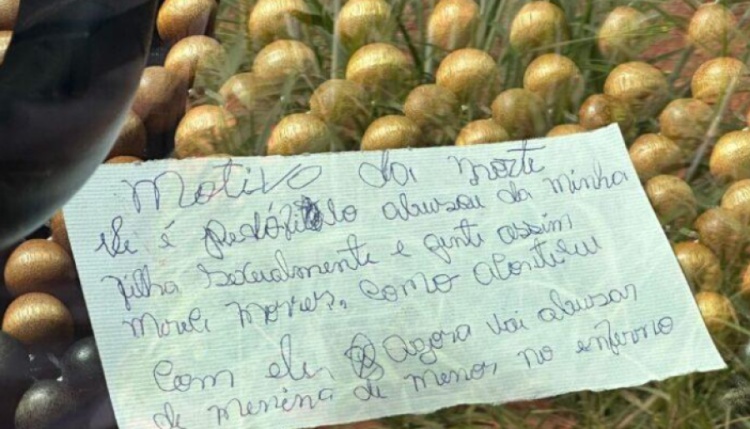 Motivo da morte
Ele é pedófilo abusou da minha
filha sexualmente e gente assim
morre, como aconteceu
com ele, agora vai abusar
de menina de menor no inferno